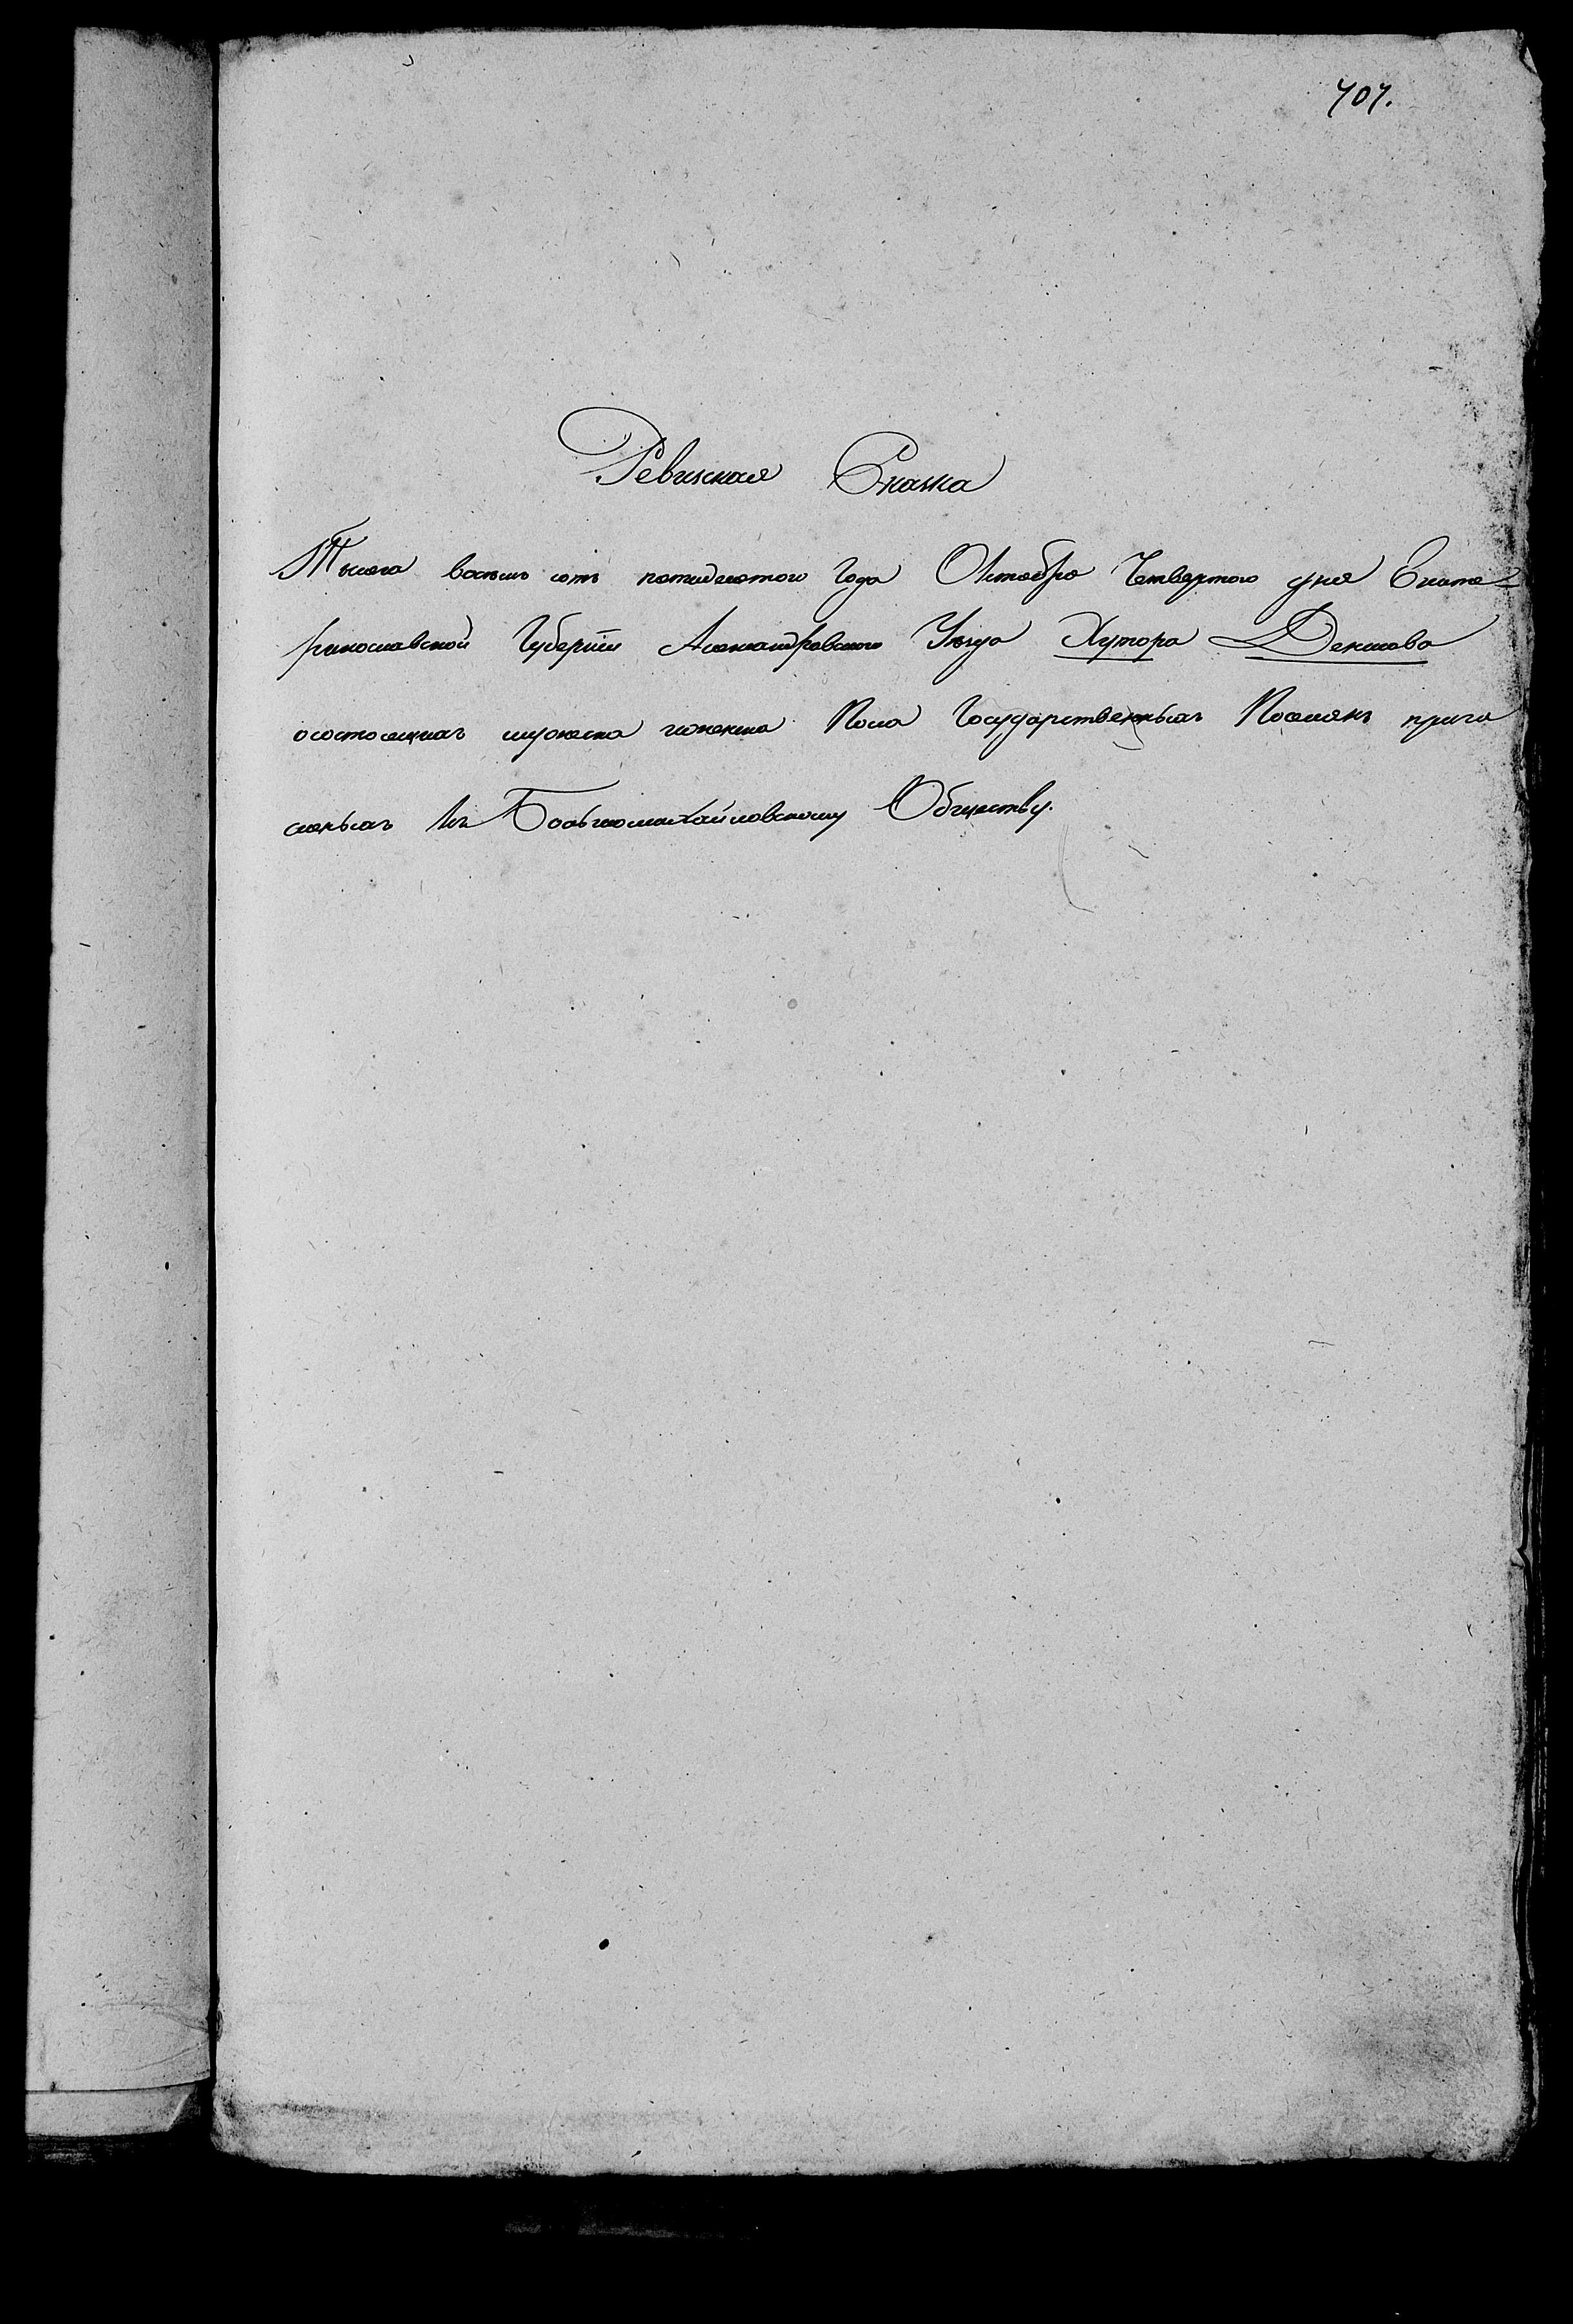 707.
Ревиская Сказка
Тысяча восемь сотъ пятидесятого Года Октября Четвертого дня Екате=
ринославской Губерніи Александровского Уезда Хутора
осостоящихъ мужеска женска Пола Государственныхъ Поселянъ причи
сленыхъ Къ Большомихайловскому Обществу.